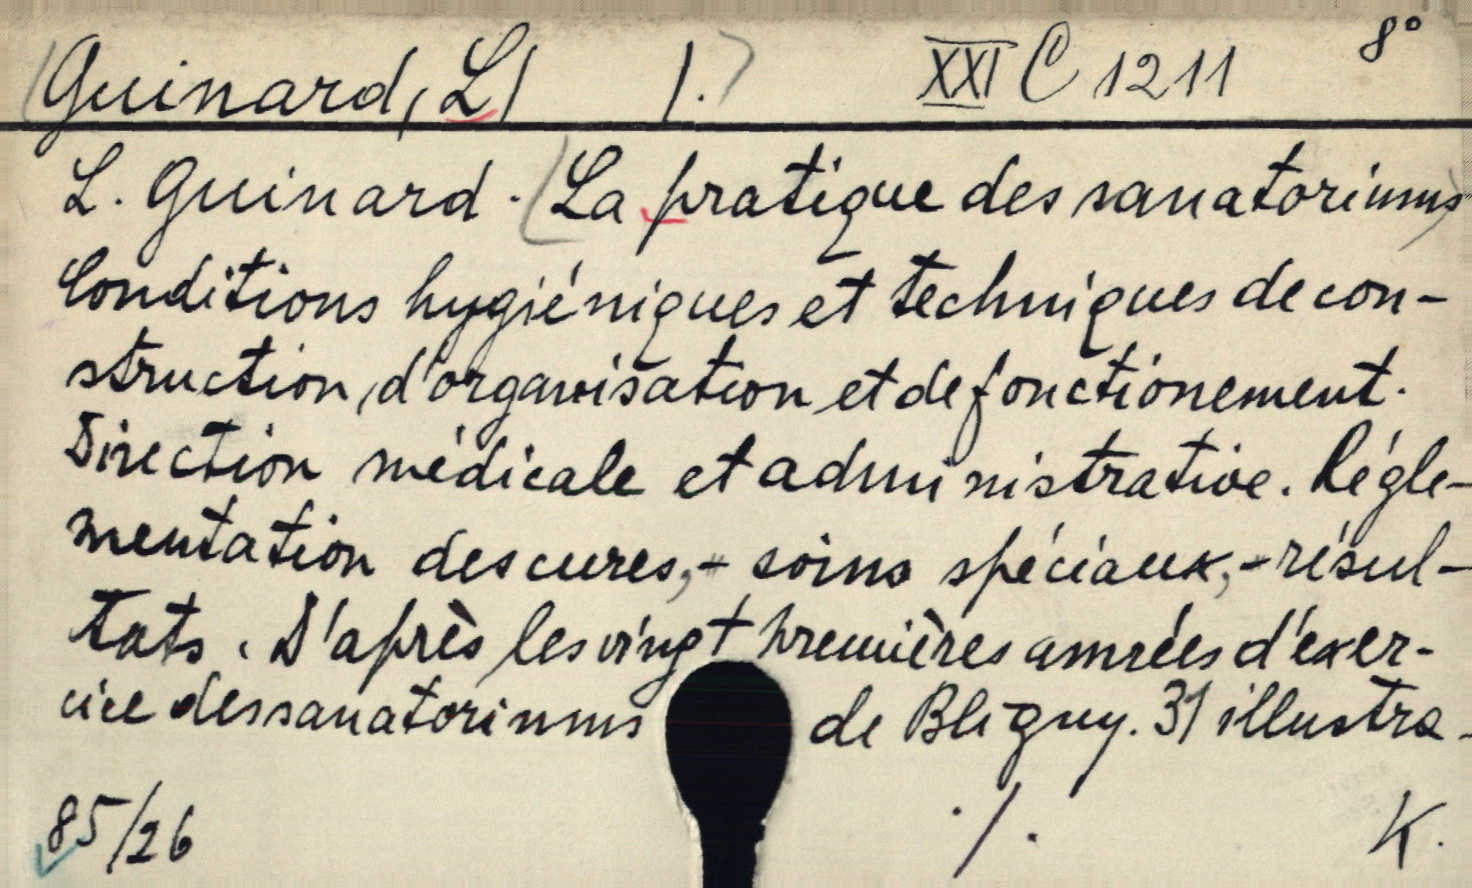 (Guinard, L/ /.) XXI C 1211 8°
L. Guinard. (La pratique des sanatoriums)
Conditions hygiéniques et techniques de con-
struction, d'organisation et de fonctionement.
Direction médicale et administrative. Régle-
mentation des cures, - soins spéciaux, - résul-
tats. D'après les vingt premières années d'exer-
cice des sanatoriums de Bligny. 31 illustra-
85/26 ./. K.